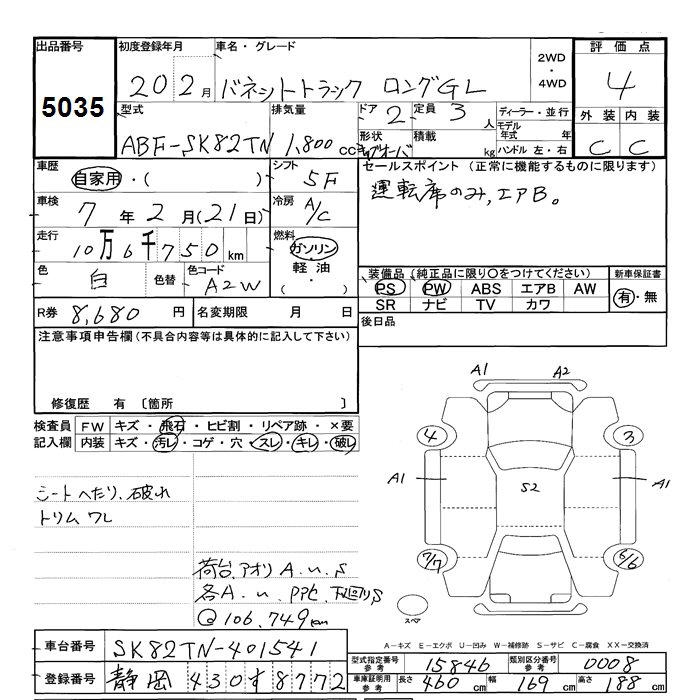 出品番号 初度登録年月 車名・グレード 評価点
5035 20 2月 バネットトラック ロングGL 2WD・4WD 4
型式 排気量 ドア 2 定員 3人 ディーラー・並行 外装 内装
ABF-SK82TN 1,800cc 形状 キャブオーバ 積載 kg モデル年式 年 ハンドル 左・右 C C
車歴 自家用・( ) シフト 5F セールスポイント (正常に機能するものに限ります)
車検 7年2月(21日) 冷房 A/C 運転席のみ,エアB。
走行 10万6千750km 燃料 ガソリン・軽油・( )
色 白 色替 色コード A2W 装備品(純正品に限り○をつけてください) 新車保証書
PS PW ABS エアB AW 有・無
R券 8,680円 名変期限 月 日 SR ナビ TV カワ
注意事項申告欄(不具合内容等は具体的に記入して下さい) 後日品
修復歴 有 〔箇所 〕
検査員 FW キズ・飛石・ヒビ割・リペア跡・×要
記入欄 内装 キズ・汚レ・コゲ・穴・スレ・キレ・破レ
シートへたり、破れ
トリムワレ
荷台、アオリ A.u.S
各A.u. PPセ.下廻りS
@106,749km
A1 A2
4 3
A1 S2 A1
7/7 6/6
スペア
A-キズ E-エクボ U-凹み W-補修跡 S-サビ C-腐食 XX-交換済
車台番号 SK82TN-401541 型式指定番号 参考 15846 類別区分番号 参考 0008
登録番号 静岡 430す8772 車庫証明用 参考 長さ 460cm 幅 169cm 高さ 188cm